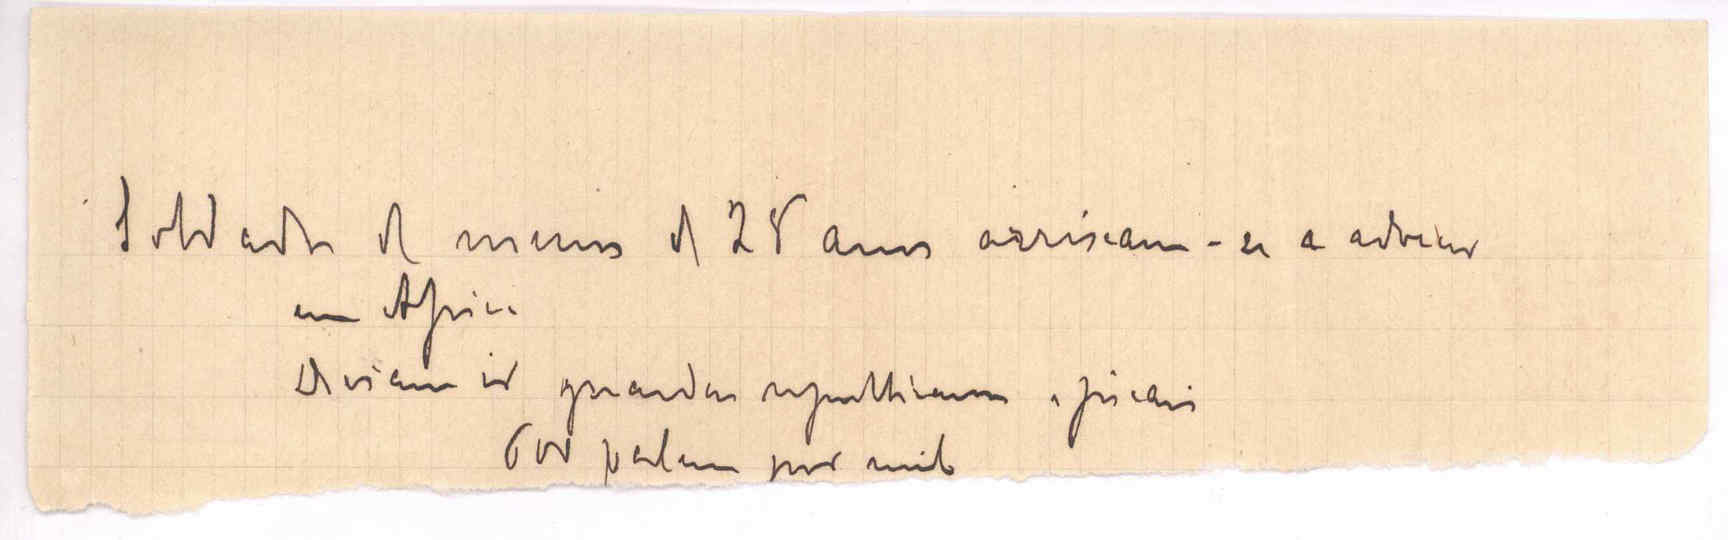 Soldados de menos de 28 anos arriscam-se a adoecer
em Africa
Deviam ir guardas republicanos e fiscais
600 patem por mil